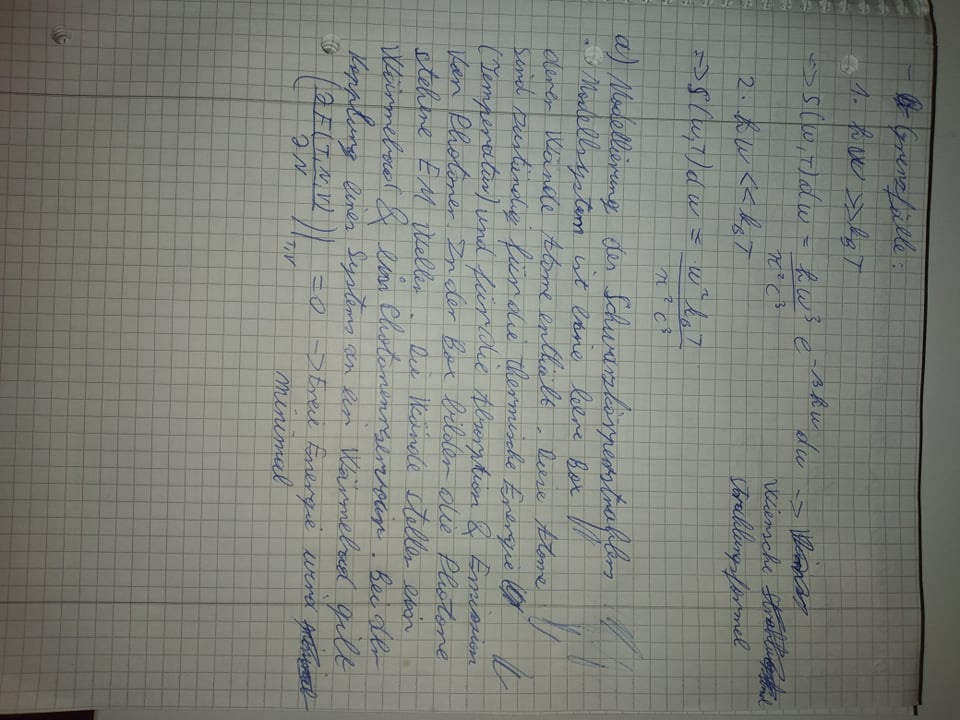 - Grenzfälle:
1. ħω >> k_BT
=> S(ω,T)dω = ħω³/π²c³ e^-βħω dω -> Wiensche
Strahlungsformel
2. ħω << k_BT
=> S(ω,T)dω = ω²k_BT/π²c³
a) Modellierung des Schwarzkörperstrahlers
. Modellsystem ist eine leere Box
deren Wände Atome enthält. Diese Atome
sind zuständig für die thermische Energie U
(Temperatur) und für die Absorption & Emission
von Photonen. In der Box bilden die Photone
stehene EM Wellen. Die Wände stellen ein
Wärmebad & ein Photonenreservoir. Bei der
Kopplung eines Systems an ein Wärmebad gilt
(∂F(T,N,V)/∂N)|_T,V = 0 -> Freie Energie wird
minimal